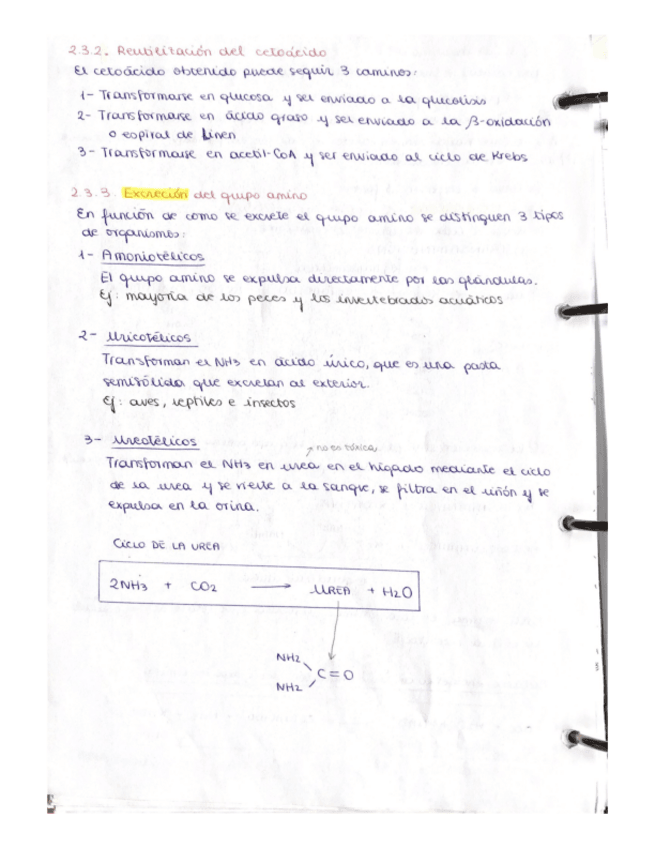 2.3.2. Reutilización del cetoácido
El cetoácido obtenido puede seguir 3 caminos:
1- Transformarse en glucosa y ser enviado a la glucólisis
2- Transformarse en ácido graso y ser enviado a la β-oxidación
o espiral de Linen
3- Transformarse en acetil-CoA y ser enviado al ciclo de Krebs
2.3.3. Excreción del grupo amino
En función de como se excrete el grupo amino se distinguen 3 tipos
de organismos:
1- Amoniotélicos
El grupo amino se expulsa directamente por las glándulas.
Ej: mayoría de los peces y los invertebrados acuáticos
2- Uricotélicos
Transforman el NH3 en ácido úrico, que es una pasta
semisólida que excretan al exterior.
Ej: aves, reptiles e insectos
3- Ureotélicos
no es tóxica
Transforman el NH3 en urea en el hígado mediante el ciclo
de la urea y se vierte a la sangre, se filtra en el riñón y se
expulsa en la orina.
CICLO DE LA UREA
2NH3 + CO2 → UREA + H2O
NH2
C=O
NH2